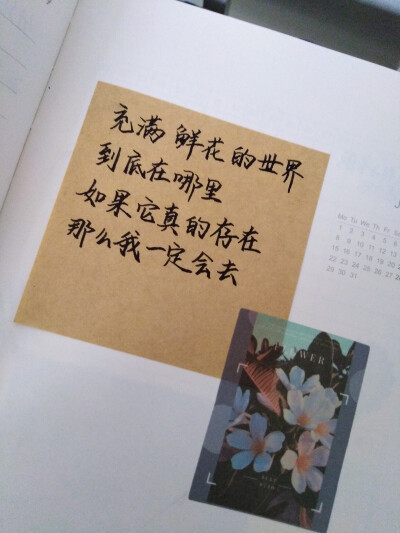 充满鲜花的世界
到底在哪里
如果它真的存在
那么我一定会去
J
Mo Tu We Th Fr Sa
1 2 3 4 5 6
8 9 10 11 12 13
15 16 17 18 19 20
22 23 24 25 26 27
29 30 31